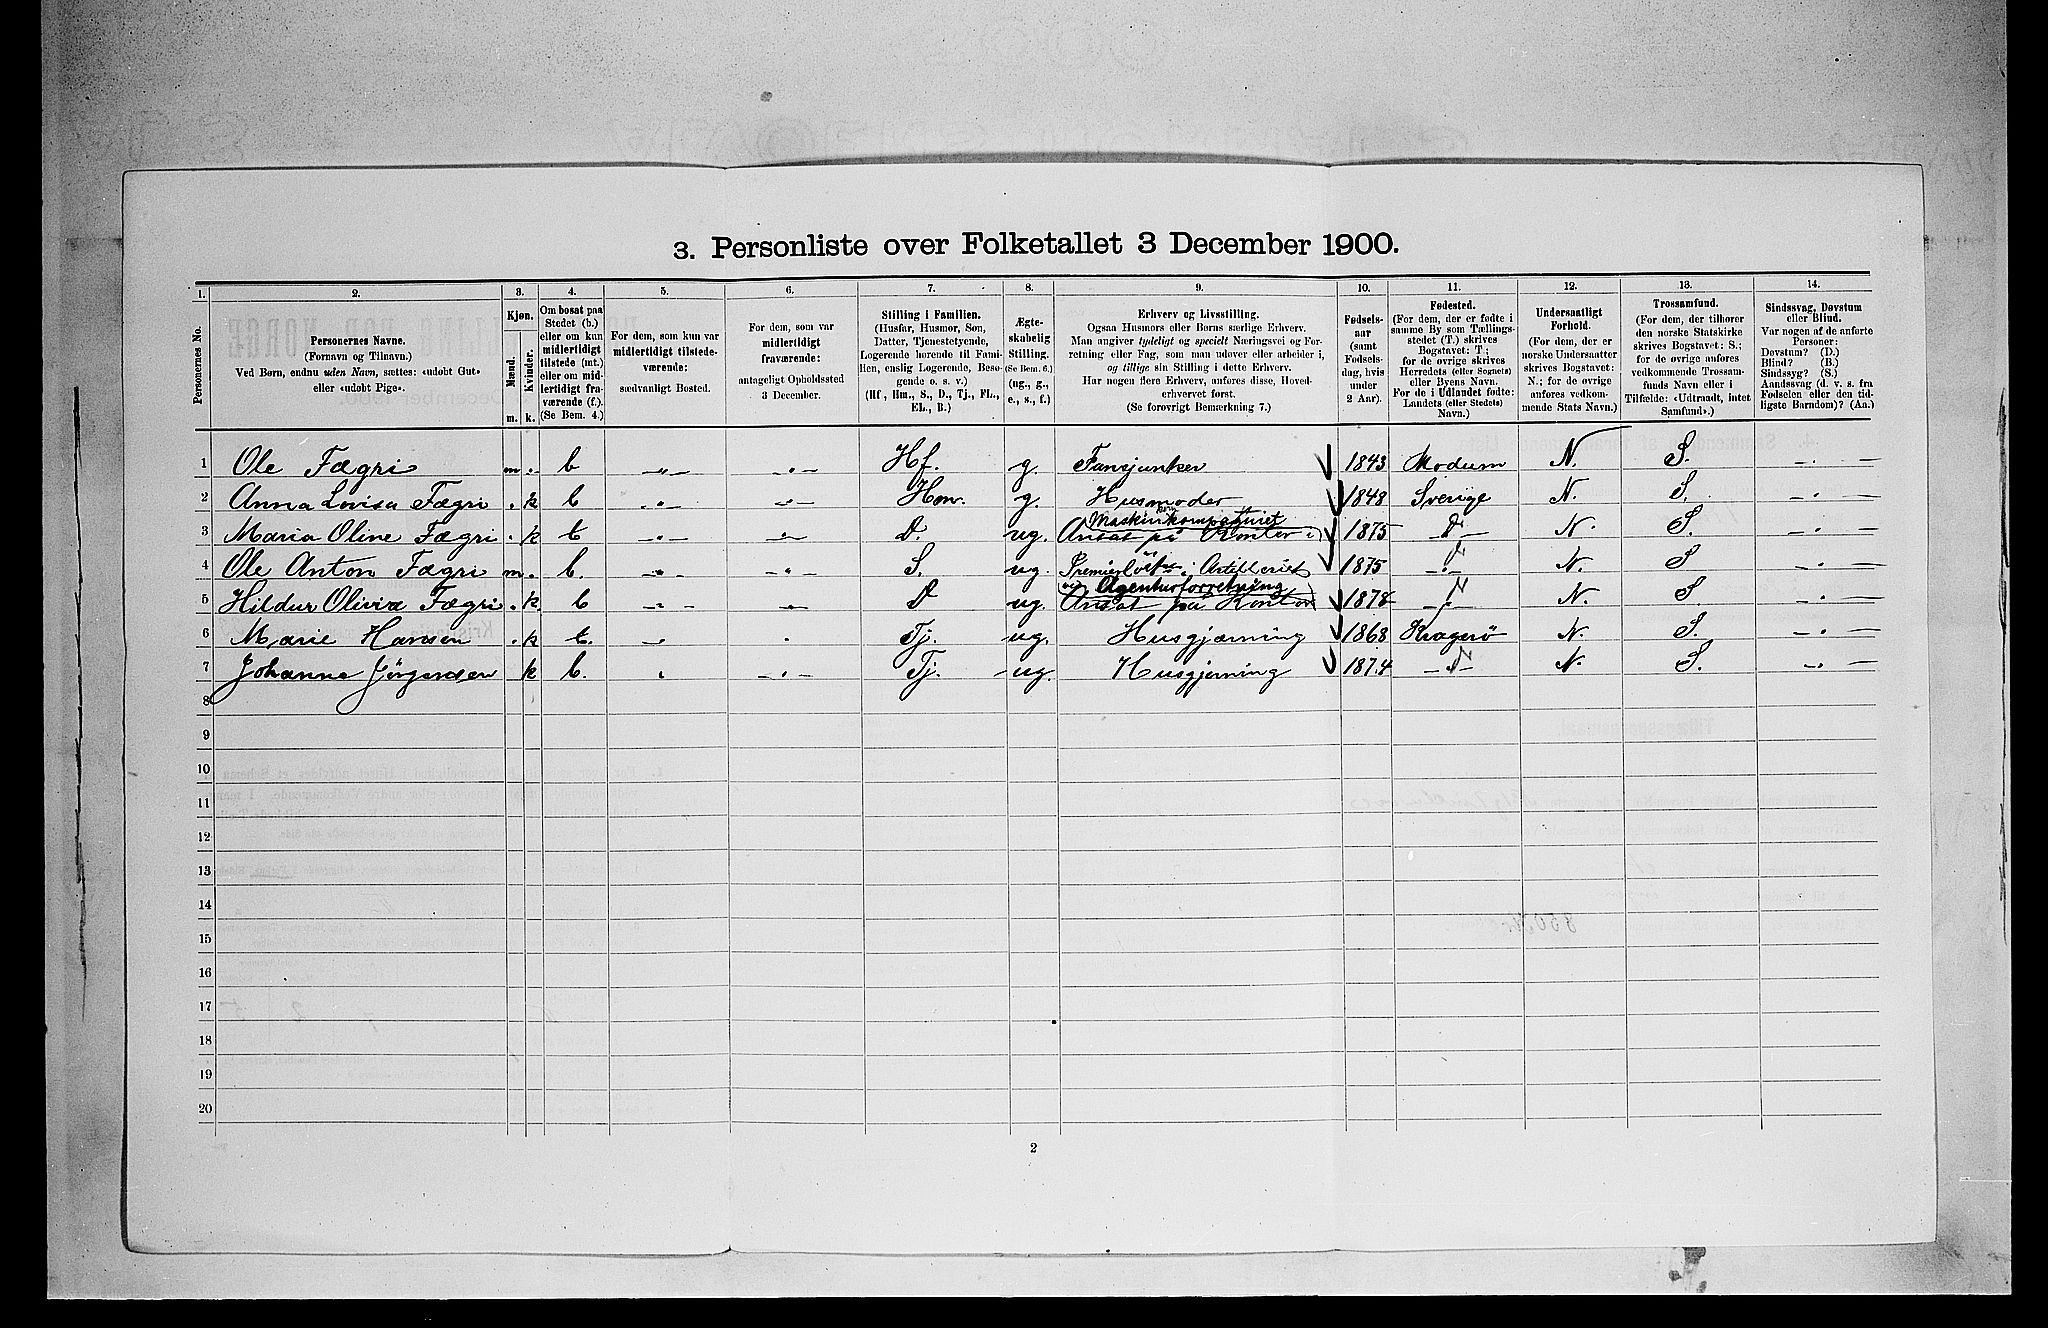 3. Personliste over Folketallet 3 December 1900.
1. 2. 3. 4. 5. 6. 7. 8. 9. 10. 11. 12. 13. 14.
Personernes No.
Personernes Navne.
(Fornavn og Tilnavn.)
Ved Børn, endnu uden Navn, sættes: «udøbt Gut»
eller «udøbt Pige».
Kjøn.
Mænd. Kvinder.
m. k.
Om bosat paa
Stedet (b.)
eller om kun
midlertidigt
tilstede (mt.)
eller om mid-
lertidigt fra-
værende (f.).
(Se Bem. 4.)
For dem, som kun var
midlertidigt tilstede-
værende:
sædvanligt Bosted.
For dem, som var
midlertidigt
fraværende:
antageligt Opholdssted
3 December.
Stilling i Familien.
(Husfar, Husmor, Søn,
Datter, Tjenestetyende,
Logerende hørende til Fami-
lien, enslig Logerende, Besø-
gende o. s. v.)
(Hf., Hm., S., D., Tj., FL.,
EL., B.)
Ægte-
skabelig
Stilling.
(Se Bem. 6.)
(ug., g.,
e., s., f.)
Erhverv og Livsstilling.
Ogsaa Husmors eller Børns særlige Erhverv.
Man angiver tydeligt og specielt Næringsvei og For-
retning eller Fag, som man udøver eller arbeider i,
og tillige sin Stilling i dette Erhverv.
Har nogen flere Erhverv, anføres disse, Hoved-
erhvervet først.
(Se forøvrigt Bemærkning 7.)
Fødsels-
aar
(samt
Fødsels-
dag, hvis
under
2 Aar).
Fødested.
(For dem, der er fødte i
samme By som Tællings-
stedet (T.) skrives
Bogstavet: T;
for de øvrige skrives
Herredets (eller Sognets)
eller Byens Navn.
For de i Udlandet fødte:
Landets (eller Stedets)
Navn.)
Undersaatligt
Forhold.
(For dem, der er
norske Undersaatter
skrives Bogstavet:
N.; for de øvrige
anføres vedkom-
mende Stats Navn.)
Trossamfund.
(For dem, der tilhører
den norske Statskirke
skrives Bogstavet: S.;
for de øvrige anføres
vedkommende Trossam-
funds Navn eller i
Tilfælde: «Udtraadt, intet
Samfund».)
Sindssvag, Døvstum
eller Blind.
Var nogen af de anførte
Personer:
Døvstum? (D.)
Blind? (B.)
Sindssyg? (S.)
Aandssvag (d. v. s. fra
Fødselen eller den tid-
ligste Barndom)? (Aa.)
1 Ole Fægri m. b Hf. g. Fanejunker 1843 Modum N. S.
2 Anna Lovisa Fægri k b Hm. g. Husmoder 1848 Sverige N. S.
Maskinkompagniet
3 Maria Oline Fægri k b D. ug. Ansat på Kontor i 1875 N. S.
4 Ole Anton Fægri m. b. S. ug. Premierløitn. i Artilleriet 1875 N. S
Agenturforretning
5 Hildur Olivia Fægri k b D ug. Ansat på Kontor 1878 N. S
6 Marie Hansen k b. Tj. ug. Husgjærning 1868 Kragerö N. S.
7 Johanne Jörgensen k b. Tj. ug. Husgjerning 1874 N. S.
8
9
10
11
12
13
14
15
16
17
18
19
20
2